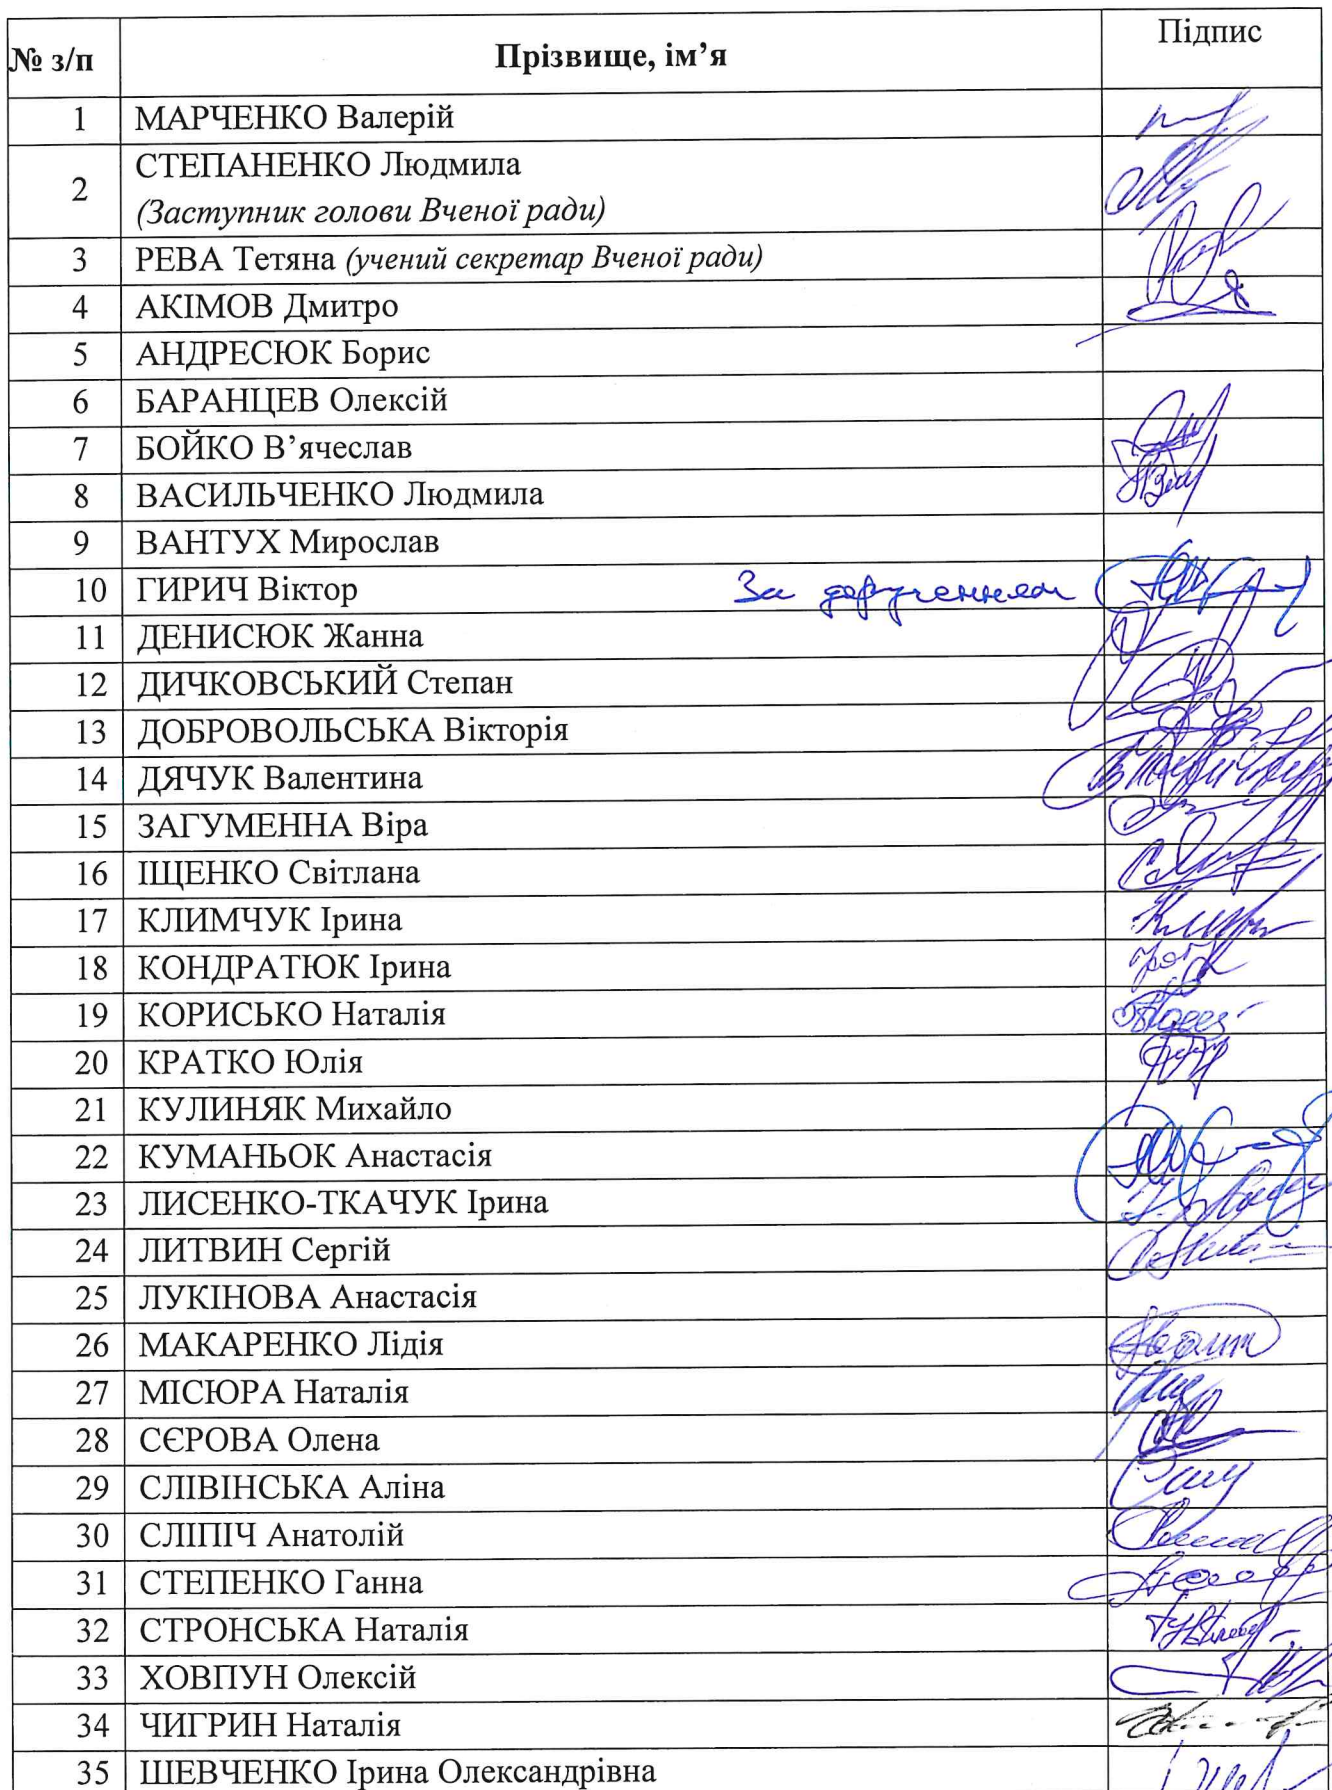 № з/п Прізвище, ім’я Підпис
1 МАРЧЕНКО Валерій
2 СТЕПАНЕНКО Людмила
(Заступник голови Вченої ради)
3 РЕВА Тетяна (учений секретар Вченої ради)
4 АКІМОВ Дмитро
5 АНДРЕСЮК Борис
6 БАРАНЦЕВ Олексій
7 БОЙКО В’ячеслав
8 ВАСИЛЬЧЕНКО Людмила
9 ВАНТУХ Мирослав
10 ГИРИЧ Віктор За дорученням
11 ДЕНИСЮК Жанна
12 ДИЧКОВСЬКИЙ Степан
13 ДОБРОВОЛЬСЬКА Вікторія
14 ДЯЧУК Валентина
15 ЗАГУМЕННА Віра
16 ІЩЕНКО Світлана
17 КЛИМЧУК Ірина
18 КОНДРАТЮК Ірина
19 КОРИСЬКО Наталія
20 КРАТКО Юлія
21 КУЛИНЯК Михайло
22 КУМАНЬОК Анастасія
23 ЛИСЕНКО-ТКАЧУК Ірина
24 ЛИТВИН Сергій
25 ЛУКІНОВА Анастасія
26 МАКАРЕНКО Лідія
27 МІСЮРА Наталія
28 СЄРОВА Олена
29 СЛІВІНСЬКА Аліна
30 СЛІПІЧ Анатолій
31 СТЕПЕНКО Ганна
32 СТРОНСЬКА Наталія
33 ХОВПУН Олексій
34 ЧИГРИН Наталія
35 ШЕВЧЕНКО Ірина Олександрівна